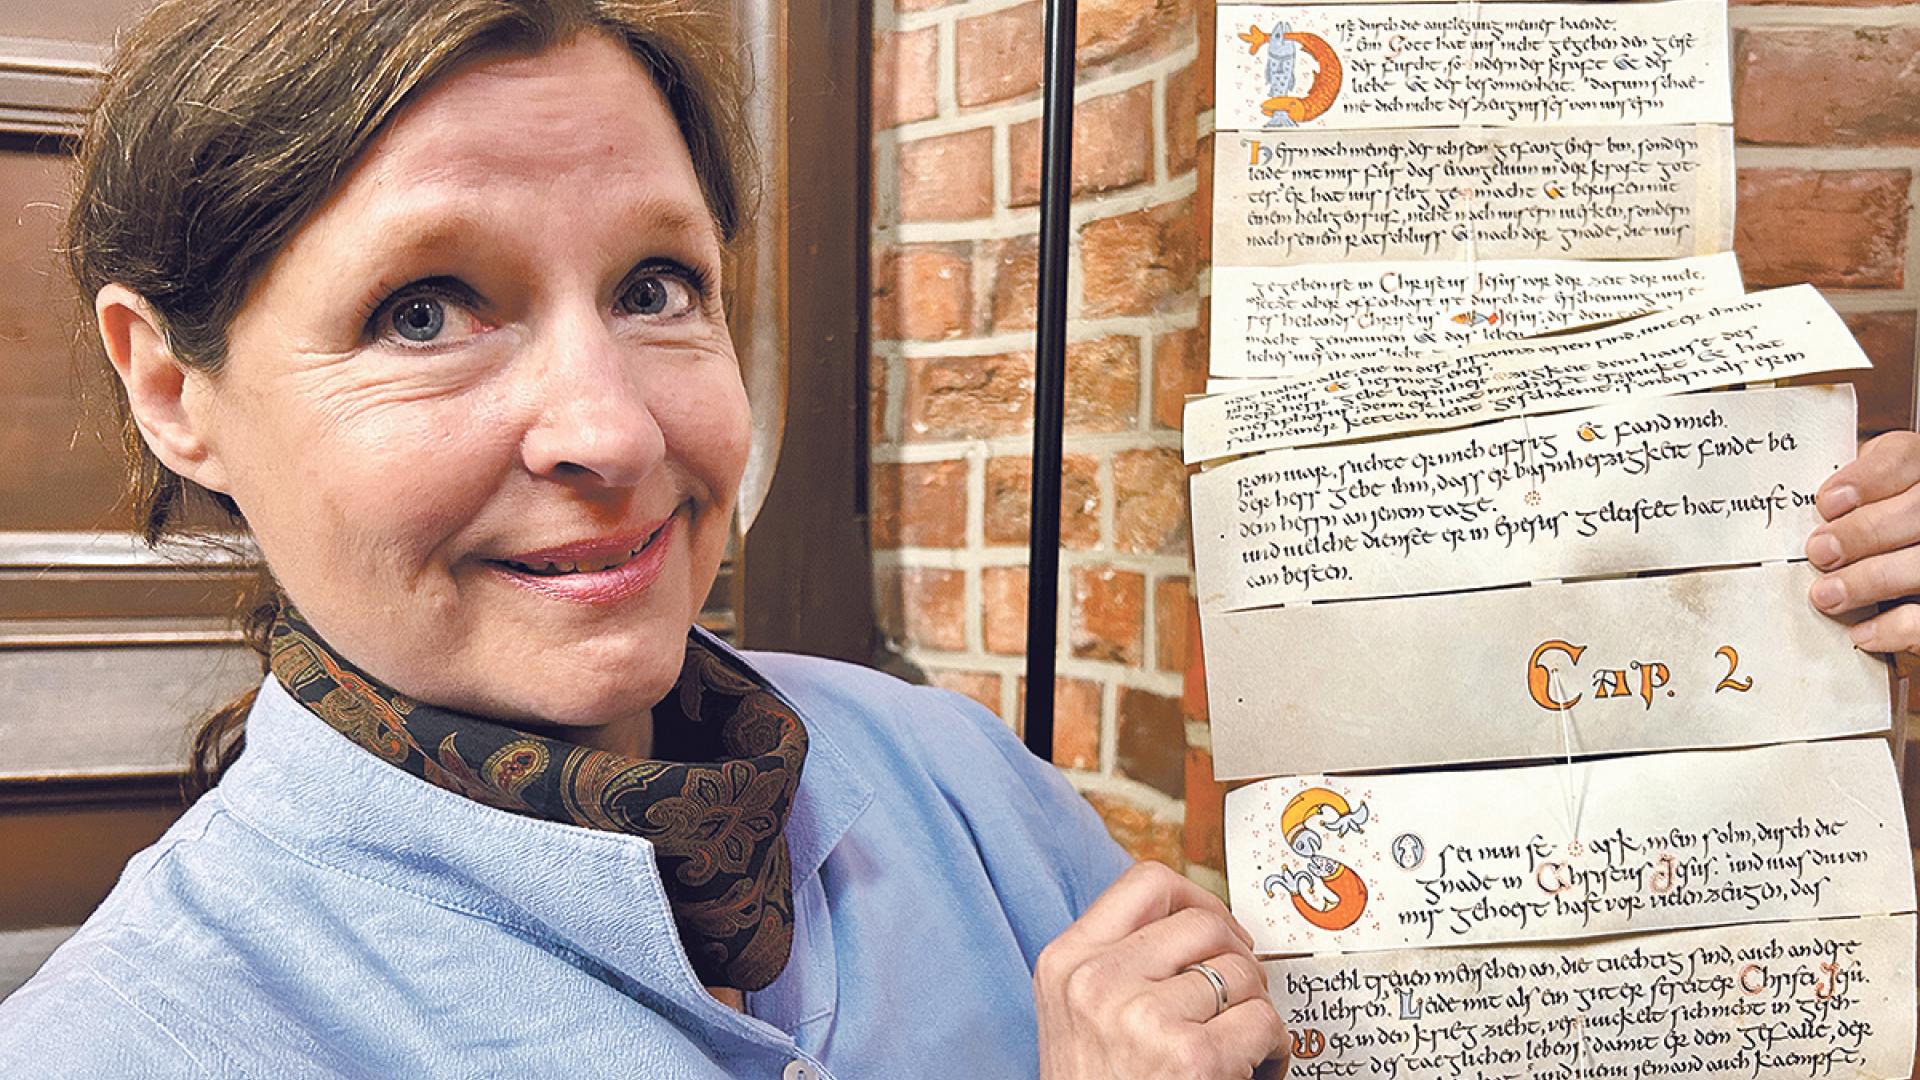 Dist durch die auflegung meiner haende.
Dem Gott hat uns nicht gegeben den geist
der furcht, sondern der kraft & der
liebe & der besonnenheit. darum schae-
me dich nicht des zeugnisses von unserm
Herrn noch meiner, der ich sein gefangener bin, sondern
leide mit mir für das Evangelium in der kraft got-
tes. Er hat uns selig gemacht & berufen mit
einem heiligen ruf, nicht nach unsern werken, sondern
nach seinem ratschluss & nach der gnade, die uns
gegeben ist in Christus Jesus vor der zeit der welt.
Jetzt aber offenbart ist durch die Erscheinung unse-
res heilands Christus Jesus, der dem
macht genommen & das leben
liches wesen ans licht
alle, die in der provinz asien sind, unter ihnen
& hermogenes.
Der herr gebe barmherzigkeit dem hause des
onesiphorus, denn er hat mich oft erquickt & hat
sich meiner ketten nicht geschaemt, sondern als er in
rom war, suchte er mich eifrig & fand mich.
der herr gebe ihm, dass er barmherzigkeit finde bei
dem herrn an jenem tage.
und welche dienste er in Ephesus geleistet hat, weist du
am besten.
Cap. 2
So sei nun stark, mein sohn, durch die
gnade in Christus Jesus. und was du von
mir gehoert hast vor vielen zeugen, das
befiehl treuen menschen an, die tuechtig sind, auch andere
zu lehren. Leide mit als ein guter streiter Christi Jesu.
Wer in den krieg zieht, verwickelt sich nicht in gesch-
aefte des taeglichen lebens, damit er dem gefalle, der
und wenn jemand auch kaempft,